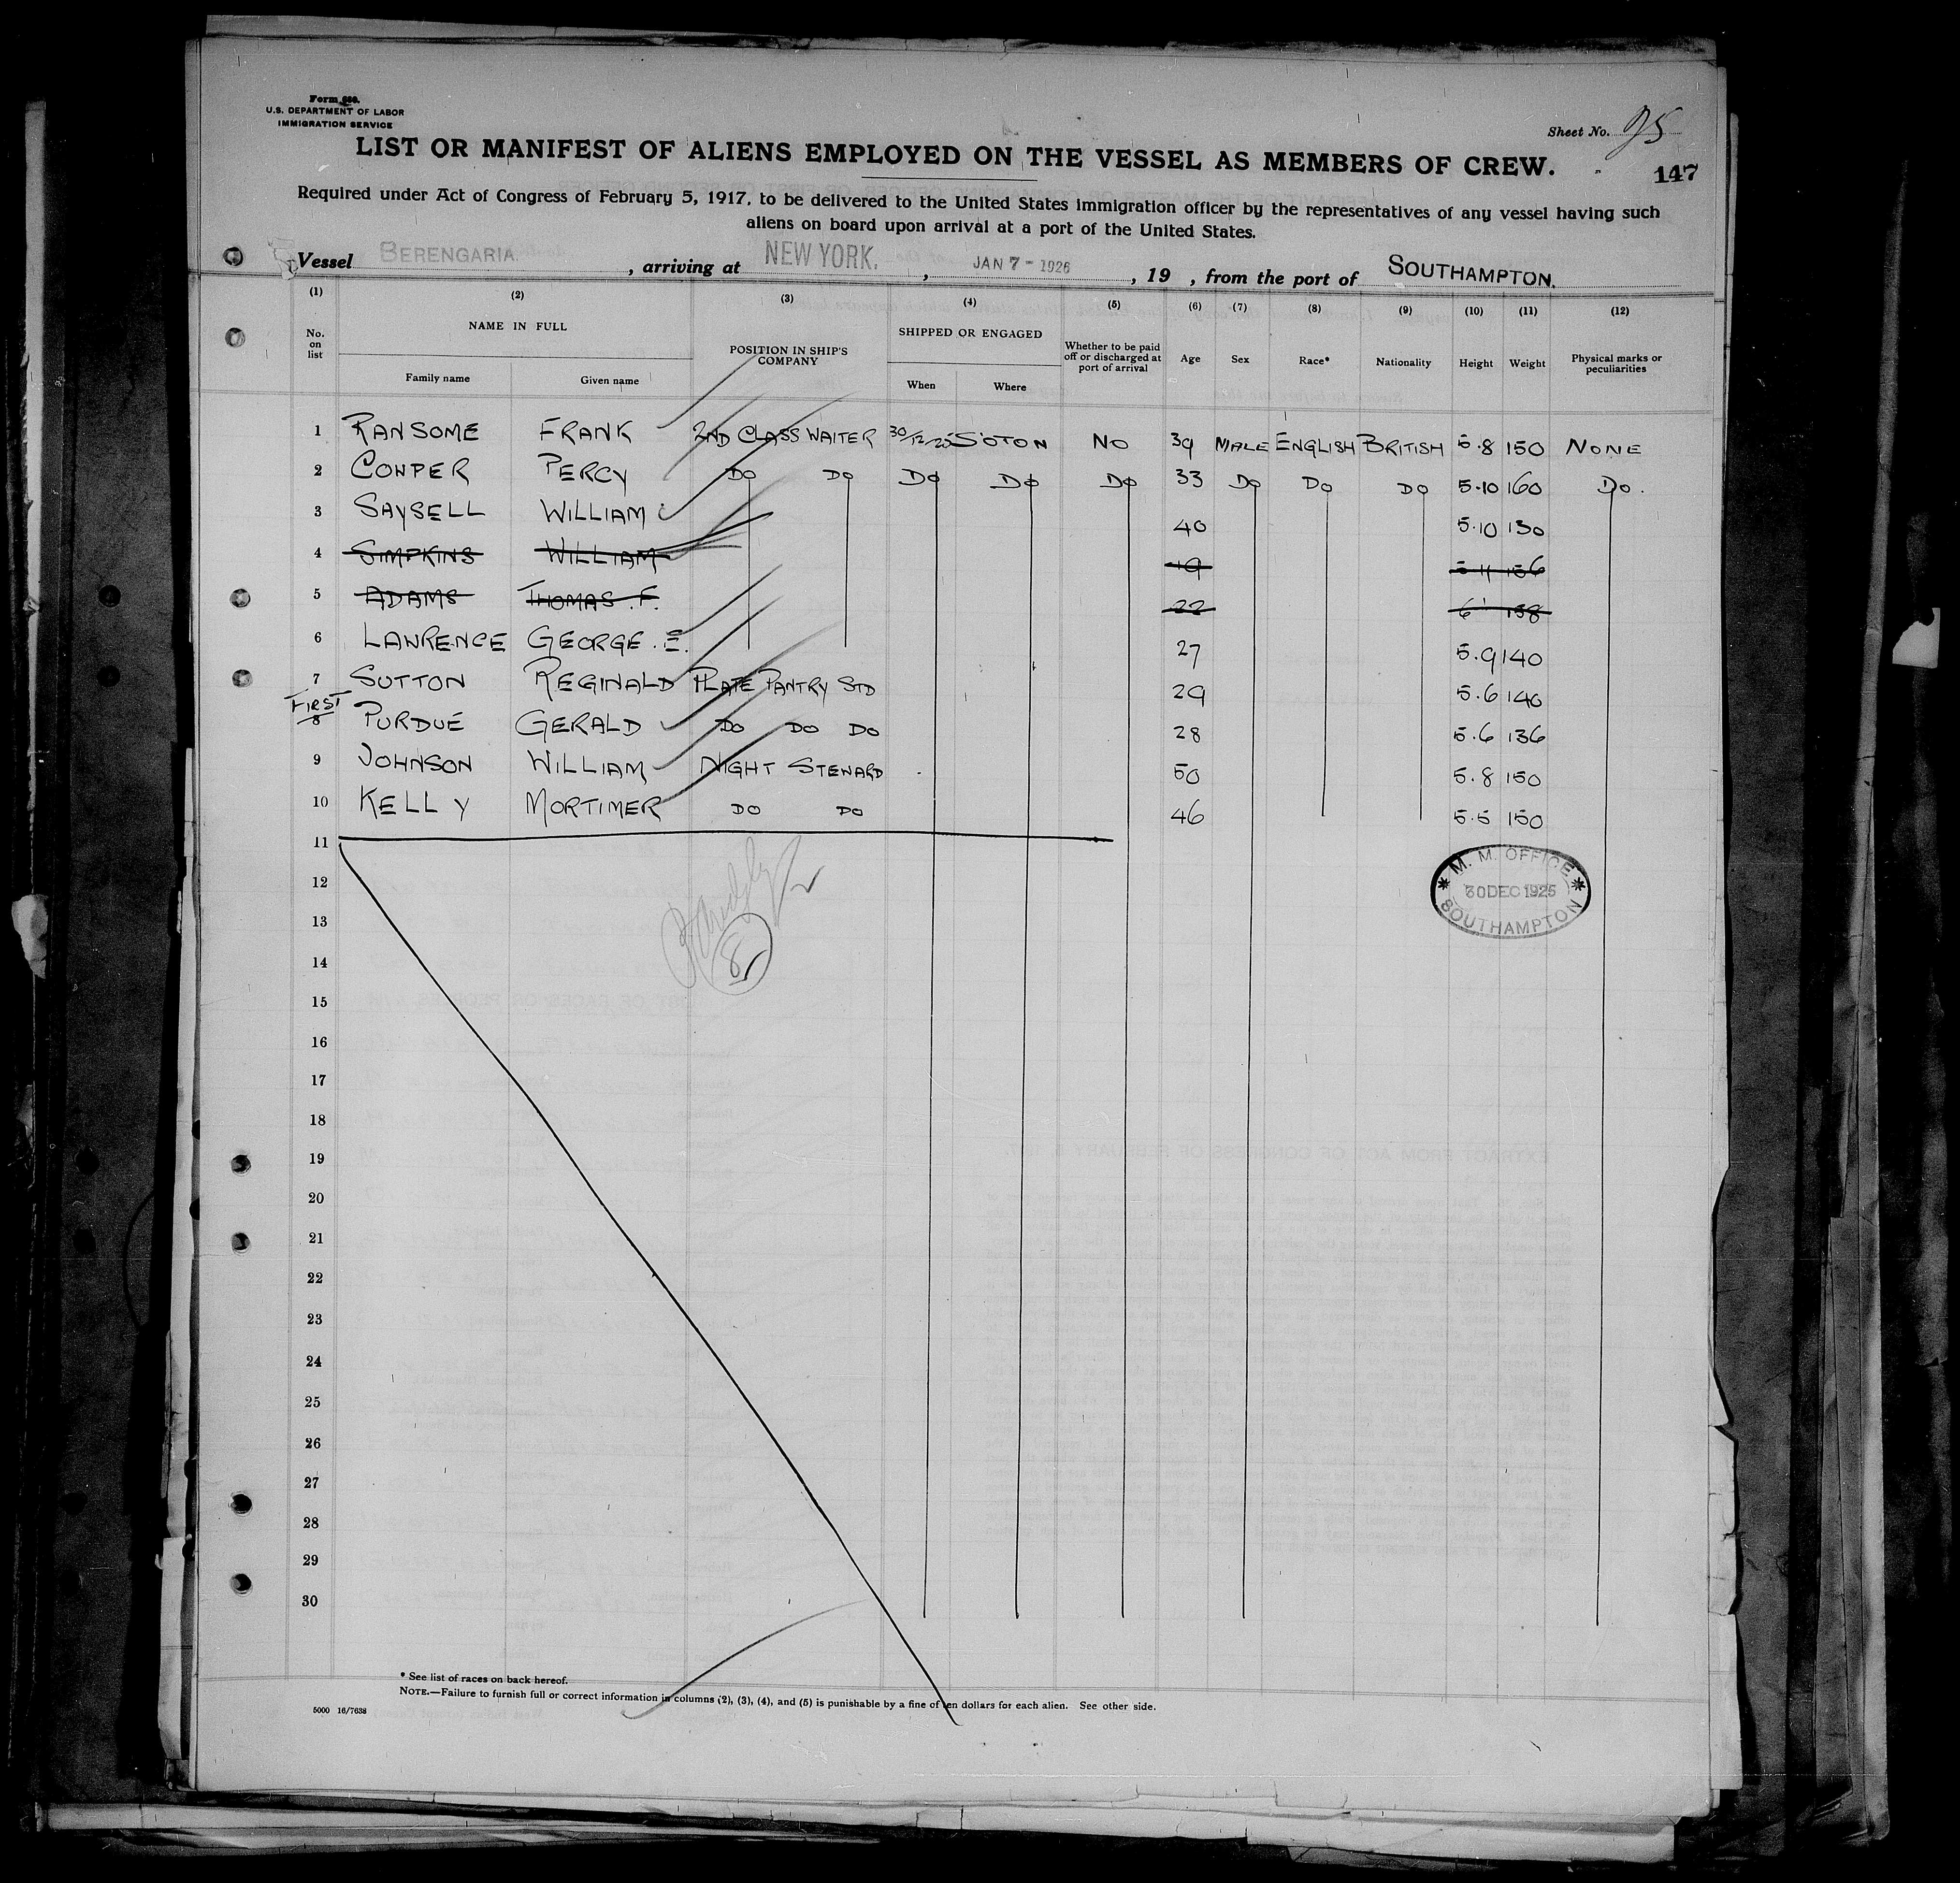 Form 680.
U.S. DEPARTMENT OF LABOR
IMMIGRATION SERVICE
Sheet No. 25
LIST OR MANIFEST OF ALIENS EMPLOYED ON THE VESSEL AS MEMBERS OF CREW.
147
Required under Act of Congress of February 5, 1917, to be delivered to the United States immigration officer by the representatives of any vessel having such
aliens on board upon arrival at a port of the United States.
Vessel BERENGARIA, arriving at NEW YORK, JAN 7 - 1926, 19 , from the port of SOUTHAMPTON.
(1) (2) (3) (4) (5) (6) (7) (8) (9) (10) (11) (12)
No. on list NAME IN FULL Family name Given name POSITION IN SHIP'S COMPANY SHIPPED OR ENGAGED When Where Whether to be paid off or discharged at port of arrival Age Sex Race* Nationality Height Weight Physical marks or peculiarities
1 RANSOME FRANK 2ND CLASS WAITER 30/12/25 S'OTON NO 39 MALE ENGLISH BRITISH 5.8 150 NONE
2 COWPER PERCY DO DO DO DO DO 33 DO DO DO 5.10 160 DO.
3 SAYSELL WILLIAM 40 5.10 130
4 SIMPKINS WILLIAM 19 5.11 156
5 ADAMS THOMAS.F. 22 6' 158
6 LAWRENCE GEORGE.E. 27 5.9 140
7 SUTTON REGINALD PLATE PANTRY STD 29 5.6 140
FIRST
8 PURDUE GERALD DO DO DO 28 5.6 136
9 JOHNSON WILLIAM NIGHT STEWARD 50 5.8 150
10 KELLY MORTIMER DO DO 46 5.5 150
11
12
13
14
15
16
17
18
19
20
21
22
23
24
25
26
27
28
29
30
8
M. M. OFFICE
30 DEC 1925
SOUTHAMPTON
* See list of races on back hereof.
NOTE.—Failure to furnish full or correct information in columns (2), (3), (4), and (5) is punishable by a fine of ten dollars for each alien. See other side.
5000 16/7638